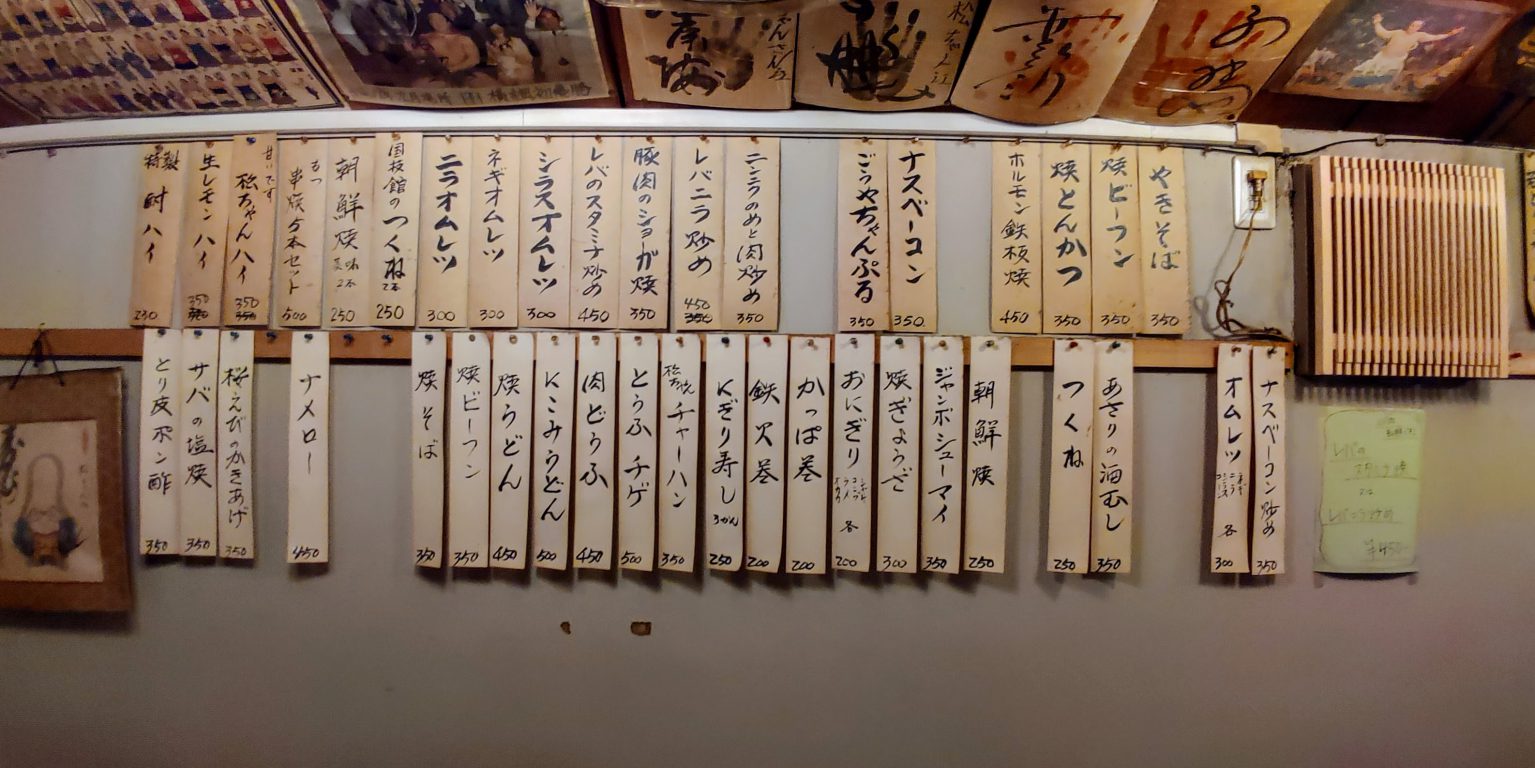 やきそば 350
焼ビーフン 350
焼とんかつ 350
ホルモン鉄板焼 450
ナスベーコン 350
ごうやちゃんぷる 350
ニンニクのめと肉炒め 350
レバニラ炒め 450 350
豚肉のショーガ焼 350
レバのスタミナ炒め 450
シラスオムレツ 300
ネギオムレツ 300
ニラオムレツ 300
国技館のつくね 2本 250
朝鮮焼 2本 250
もつ串焼5本セット 500
甘いです
松ちゃんハイ 350
生レモンハイ 350
特製酎ハイ 230
ナスベーコン炒め 350
オムレツ ネギ ニラ シラス 各 300
あさりの酒むし 350
つくね 250
朝鮮焼 250
ジャンボシューマイ 350
焼ぎょうざ 300
おにぎり 各 200
かっぱ巻 200
鉄火巻 200
にぎり寿し 3かん 250
チャーハン 350
とうふチゲ 500
肉どうふ 450
にこみうどん 500
焼うどん 450
焼ビーフン 350
焼そば 350
ナメロー 450
桜えびのかきあげ 350
サバの塩焼 350
とり皮ポン酢 350
レバの
¥450-